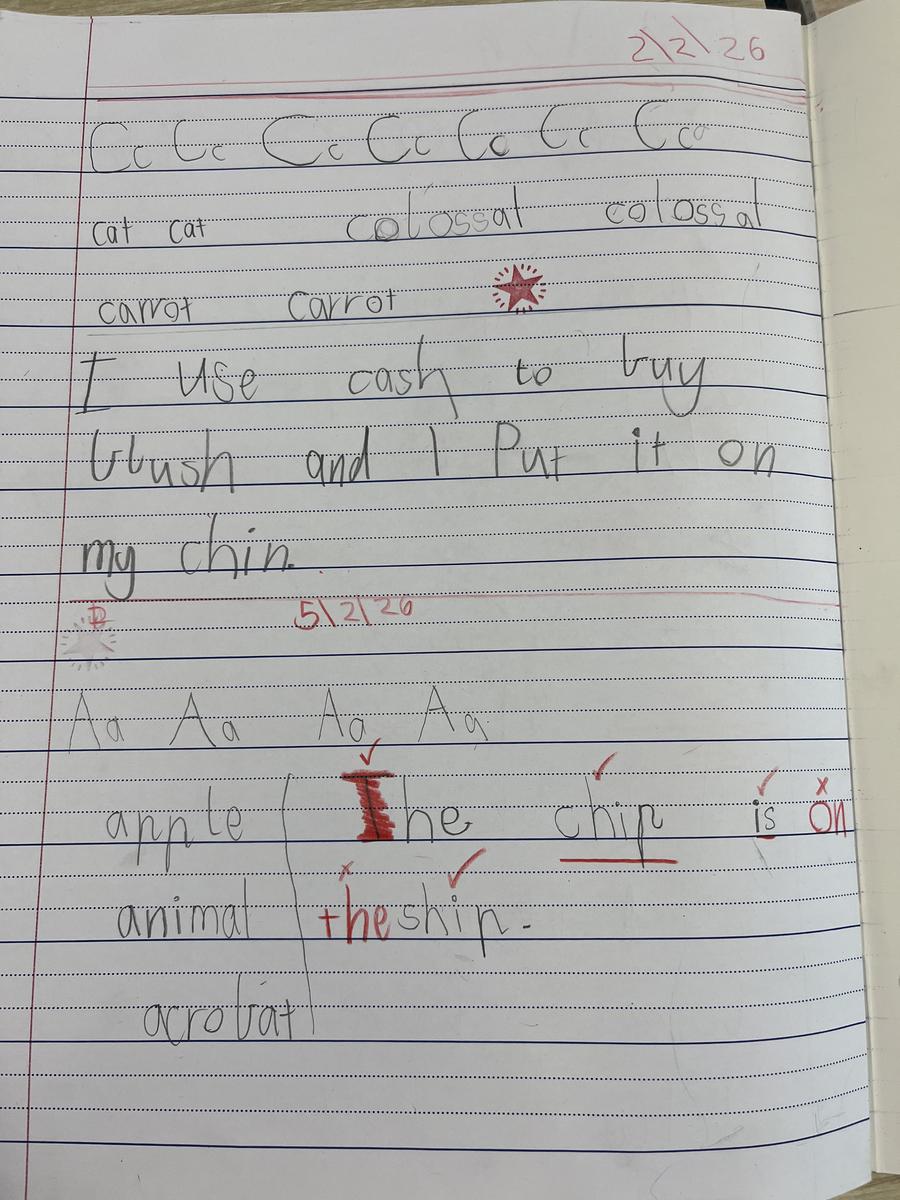 2\2\26
Cc Cc Cc Cc Cc Cc Cca
cat cat colossal colossal
carrot carrot
I use cash to buy
blush and I Put it on
my chin.
5\2\26
Aa Aa Aa Aa
apple The chip is on
animal the ship.
acrobat